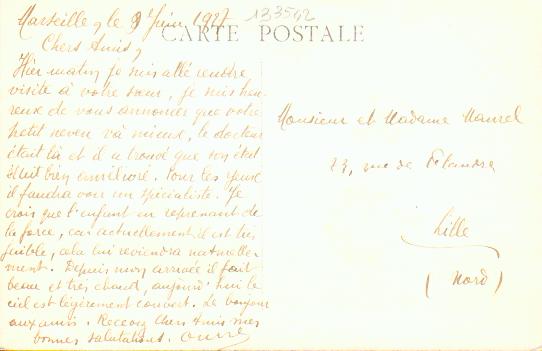 133542
CARTE POSTALE
Marseille, le 9 Juin 1927
Chers Amis,
Hier matin je suis allé rendre
visite à votre sœur, je suis heu-
reuse de vous annoncer que votre
petit neveu va mieux, le docteur
était là et il a trouvé que son état
était bien amélioré. Pour les yeux
il faudra voir un spécialiste. Je
crois que l'enfant en reprenant de
la force, car actuellement il est très
faible, cela lui reviendra naturelle-
ment. Depuis mon arrivée il fait
beau et très chaud, aujourd'hui le
ciel est légèrement couvert. Le bonjour
aux amis. Recevez Chers Amis mes
bonnes salutations.
Monsieur et Madame Maurel
23, rue de Flandre
Lille
(Nord)